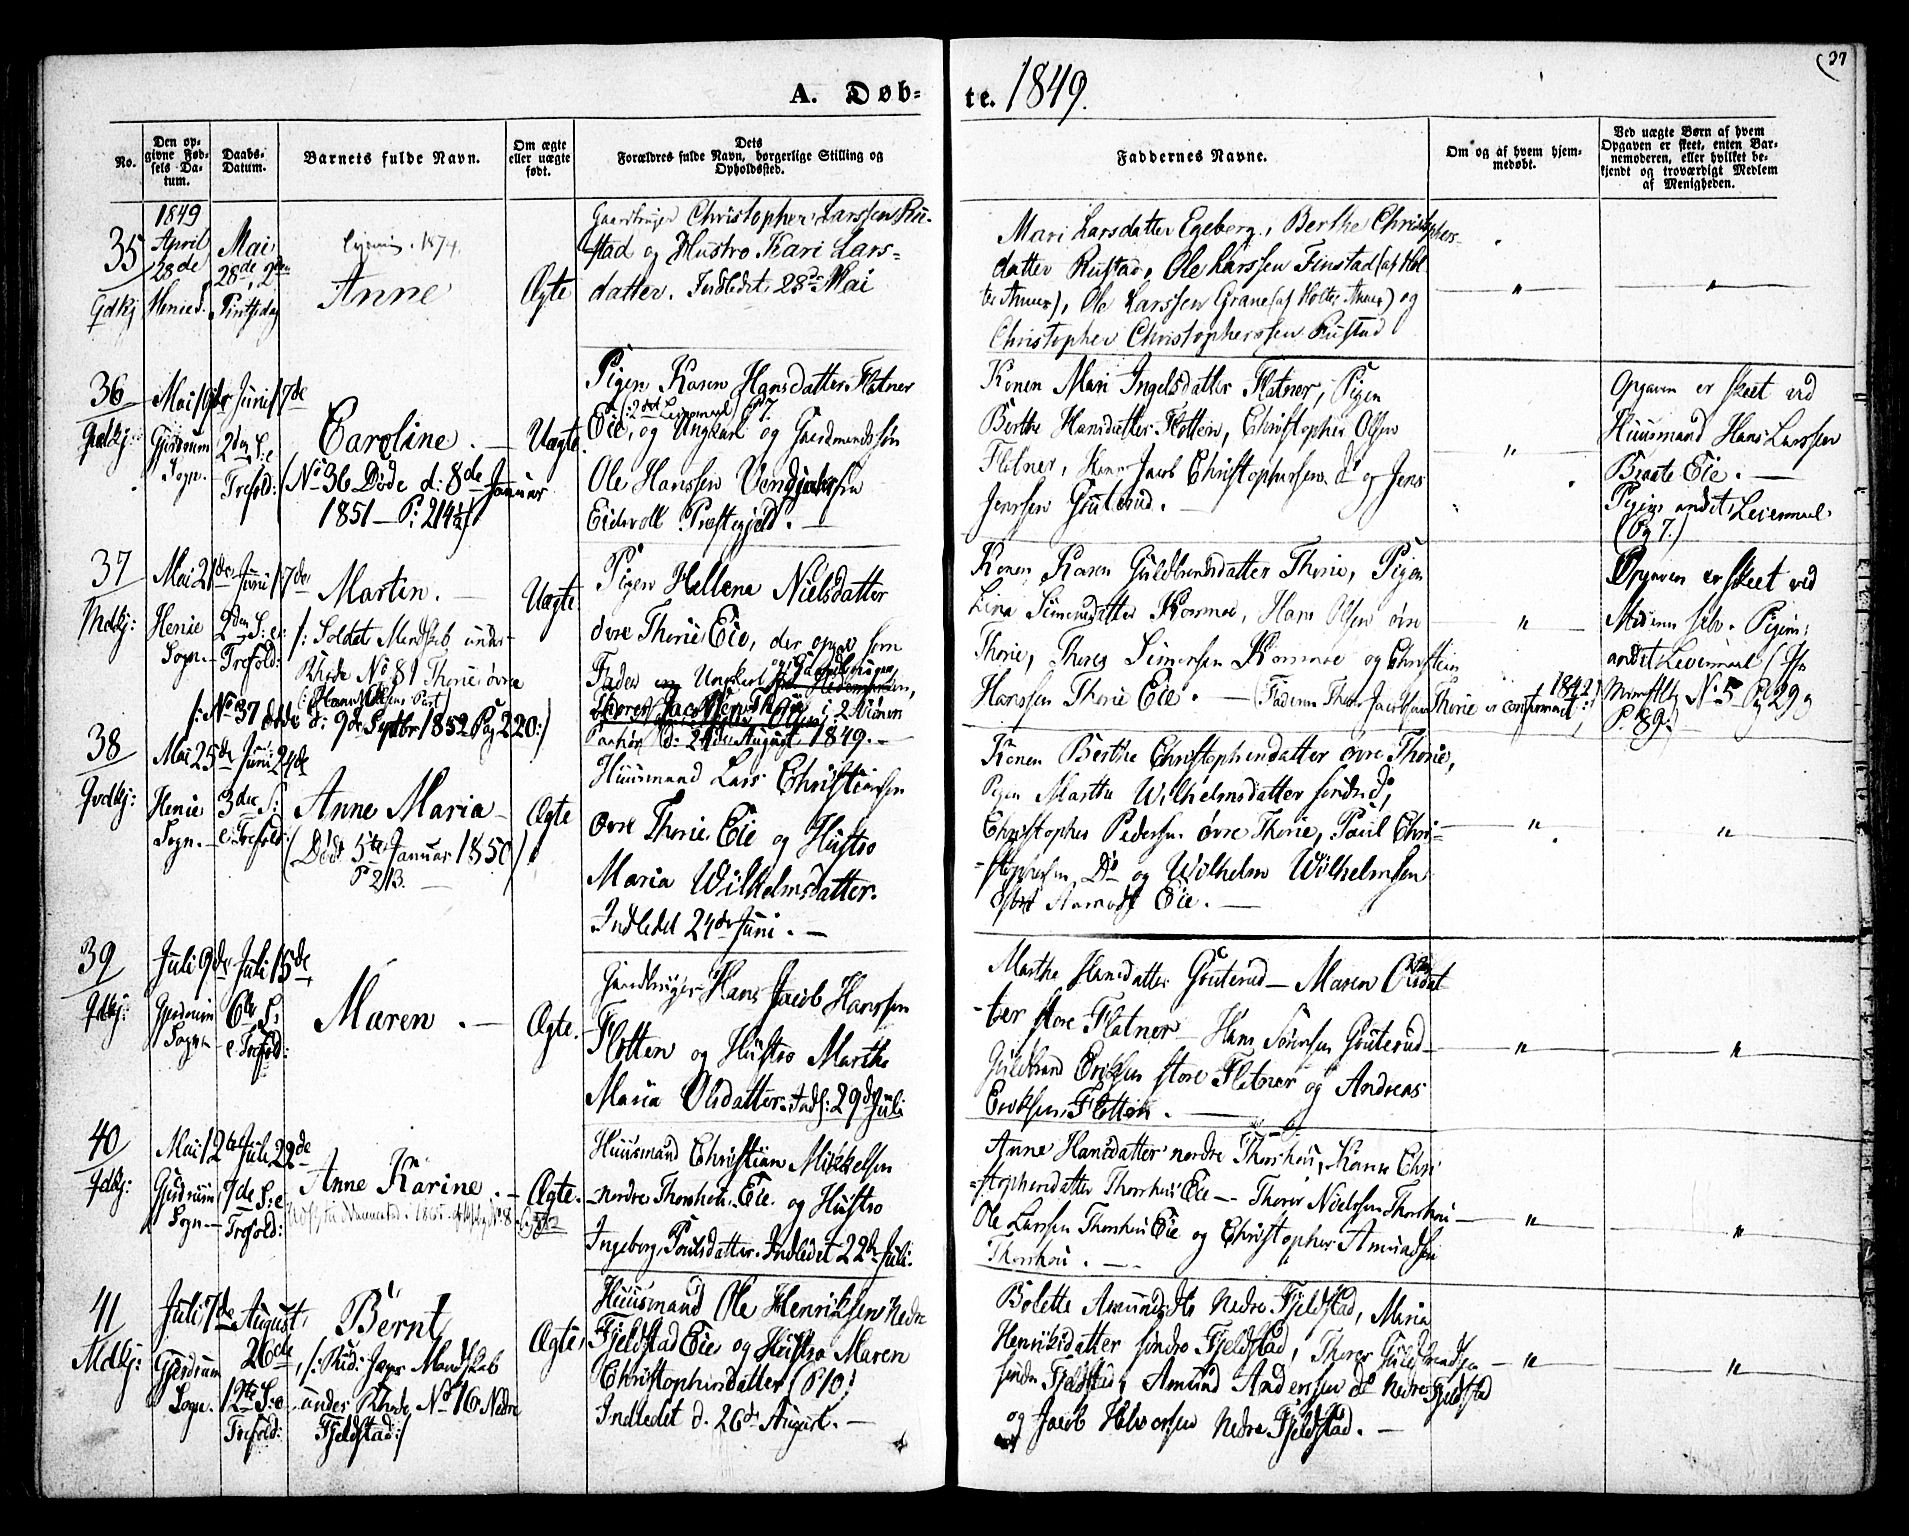 A. Døb-
te. 1849.
37
No.
Den op-
givne Fød-
sels Da-
tum.
Daabs-
Datum.
Barnets fulde Navn.
Om ægte
eller uægte
født.
Dets
Forældres fulde Navn, borgerlige Stilling og
Opholdssted.
Faddernes Navne.
Om og af hvem hjem-
medøbt.
Ved uægte Børn af hvem
Opgaven er skeet, enten Bar-
nemoderen, eller hvilket be-
kjendt og troværdigt Medlem
af Menigheden.
35
Qdkj
1849
April
28de
Henie S.
Mai
28de, 2den
Pintsedag
1874.
Anne
Ægte
Gaardbruger Christopher Larssen Ru-
stad og Hustro Kari Lars-
datter. Indledet 28de Mai
Mari Larsdatter Egeberg, Berthe Christophers-
datter Rustad, Ole Larssen Finstad (af Hol-
ter Annex), Ole Larssen Grane (af Holter Annex) og
Christopher Christophersen Rustad
"
"
36
Qvdkj:
Mai
Gjerdrum
Sogn.
Juni 17de
2den S: e
Trefold:
Caroline.
(No 36 Døde d: 8de Januar
1851 — P: 214
Uægte.
Pigen Karen Hansdatter Flatner
(: 2det Leiermaal) P 7.
Eie, og Ungkarl og Gaardmandssøn
Ole Hanssen
Eidsvold Præstegjeld. —
Konen Mari Ingelsdatter Flatner, Pigen
Berthe Hansdatter Flotten, Christopher Olsen
Flatner, Hans Jacob Christophersen do og Jens
Jenssen Gruterud. —
"
Opgaven er skeet ved
Huusmand Hans Larssen
Braate Eie. —
Pigens andet Leiermaal
(Pg 7.)
37
Mdkj:
Mai 21de
Henie
Sogn. —
Juni 17de
2den S: e:
Trefold:
Martin. —
/: Soldat Mandskab under
Rhode No 81 Thorie øvre
(: Hans Olsens Part)
/: No 37 døde d: 9de Septbr 1852 Pag 220:/
Uægte.
Pigen Hellena Nielsdatter
øvre Thorie Eie, der opgav som
Fader Ungkarl og Gaardbruger
Thorer Jacobsen Thorie i 2 Vidners
Paahør d: 24de August 1849. —
Konen Karen Guldbrandsdatter Thorie, Pigen
Lina Simensdatter Kommoe, Hans Olsen øvre
Thorie, Thorer Simensen Kommoe og Christian
Hanssen Thorie Eie. — (Faderen Thorer Jacobsen Thorie er confirmeret 1842)
"
Opgaven er skeet ved
Moderen selv. Pigens
andet Leiermaal (
No 5 Pg 29 g
P. 89.)
38
Qvdkj:
Mai 25de
Henie
Sogn. —
Juni 24de
3die S:
e: Trefold:
Anne Maria —
(Døde 5te Januar 1850)
P 213. —
Ægte
Huusmand Lars Christiansen
øvre Thorie Eie og Hustro
Maria Wilhelmsdatter.
Indledet 24de Juni. —
Konen Berthe Christophersdatter øvre Thorie,
Pigen Marthe Wilhelmsdatter søndre do,
Christopher Pedersen øvre Thorie, Paul Chri-
-stophersen Do og Wilhelm Wilhelmsen
Aamodt Eie. —
"
"
39
Qdkj:
Juli 9de
Gjerdrum
Sogn
Juli 15de
6te S:
e Trefold:
Maren. —
Ægte.
Gaardbruger Hans Jacob Hanssen
Flotten og Hustro Marthe
Maria Olsdatter. Indl: 29de Juli
Marthe Hansdatter Gruterud — Maren Olsdat-
-ter store Flatner — Hans Sørensen Gruterud —
Guldbrand Eriksen store Flatner og Andreas
Eriksen Flotten. —
"
"
40
Qdkj:
Mai 12te
Gjerdrum
Sogn. —
Juli 22de
7de S: e
Trefold:
Anne Karine. —
Ægte.
Huusmand Christian Mikkelsen
nordre Thorshou Eie og Hustro
Ingeborg Poulsdatter. Indledet 22de Juli.
Anne Hansdatter nordre Thorshou, Karen Chri-
-stophersdatter Thorshou Eie — Thorer Nielssen Thorshou —
Ole Larssen Thorshou Eie og Christopher Amundsen
Thorshou. —
"
"
41
Mdkj:
Juli 7de
Gjerdrum
Sogn.
August
26de
12te S: e
Trefold:
Bernt
/: Rid: Jæger Mandskab
under Rhode No 16 Nedre
Fjeldstad :/
Ægte
Huusmand Ole Henriksen Nedre
Fjeldstad Eie og Hustro Maren
Christophersdatter (P 10)
Indledet d. 26de August. —
Bolette Amundsdtr Nedre Fjeldstad, Maria
Henriksdatter søndre Fjeldstad, Thorer Guldbrandsen
søndre Fjeldstad, Amund Anderssen do Nedre Fjeldstad
og Jacob Halvorsen Nedre Fjeldstad. —
"
"